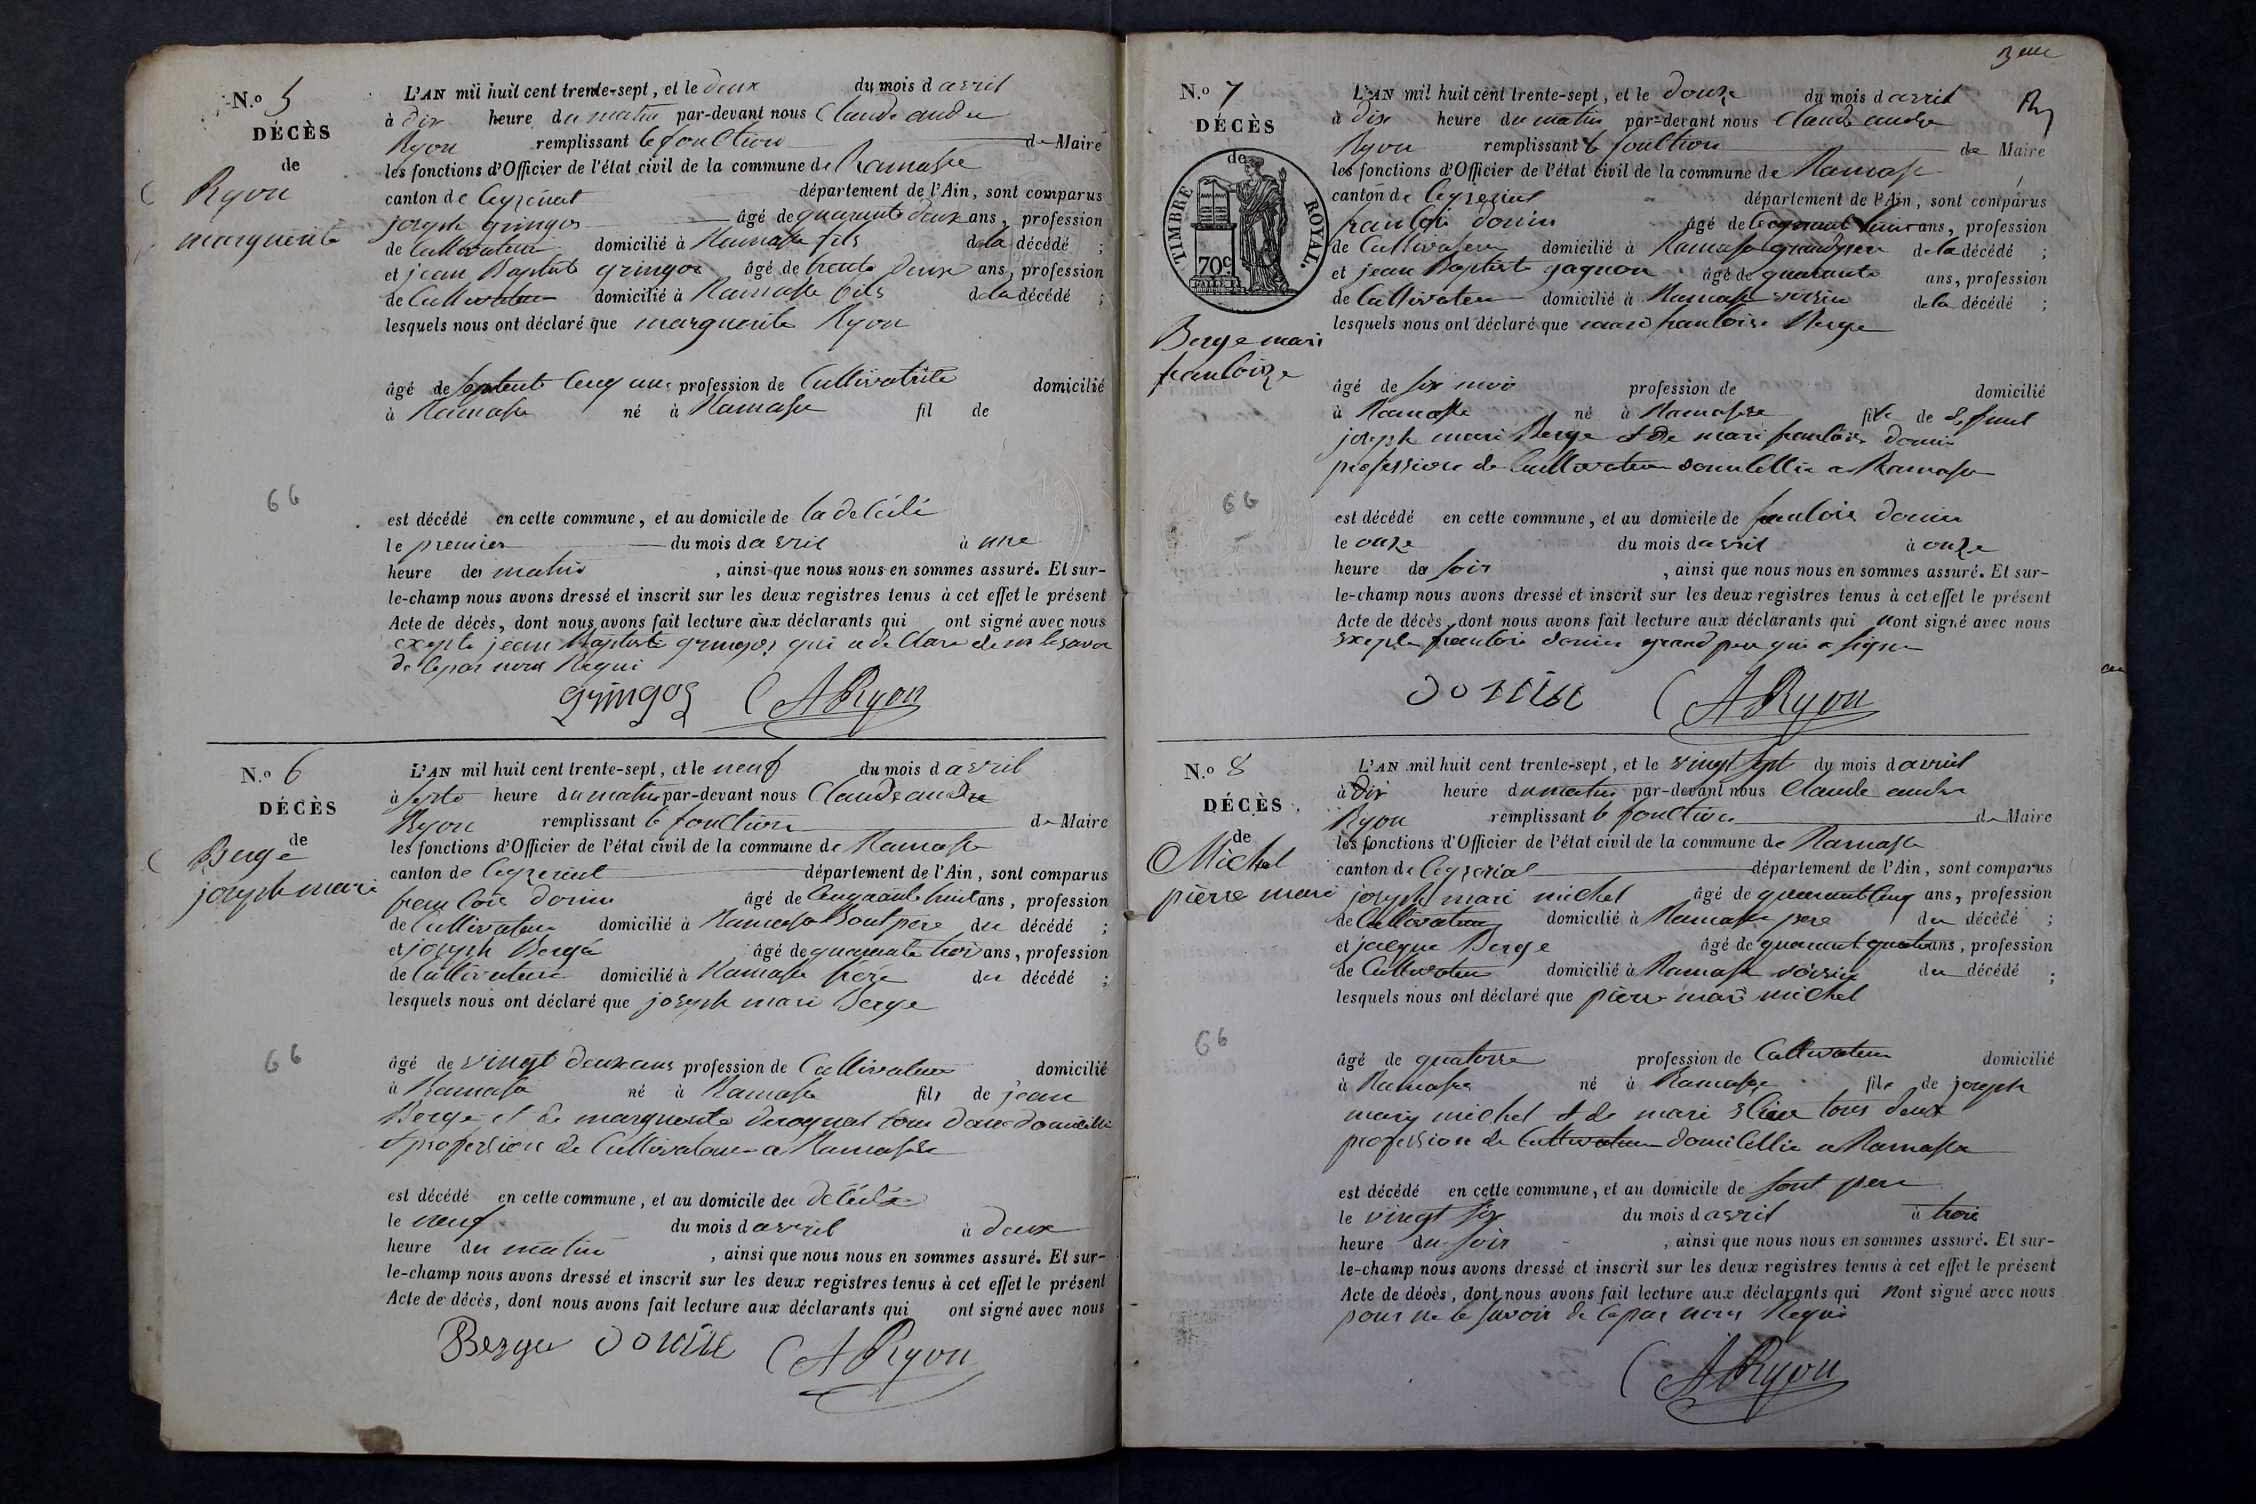 N.º 5
DÉCÈS
de
Ryon
marguerite
L'AN mil huit cent trente-sept, et le deux du mois d avril
à dix heure du matin par-devant nous Claude andre
Ryon remplissant le fonction de Maire
les fonctions d'Officier de l'état civil de la commune de Ramasse
canton de Ceyzeriat département de l'Ain, sont comparus
joseph gringoz âgé de quarante deux ans, profession
de Cultivateur domicilié à Ramasse fils de la décédé ;
et jean Baptiste gringoz âgé de trente deux ans, profession
de Cultivateur domicilié à Ramasse fils de la décédé ;
lesquels nous ont déclaré que marguerite Ryon
âgé de septente Cenq ans profession de Cultivatrice domicilié
à Ramasse né à Ramasse fil de
66
est décédé en cette commune, et au domicile de la décédé
le premier du mois d avril à une
heure du matin , ainsi que nous nous en sommes assuré. Et sur-
le-champ nous avons dressé et inscrit sur les deux registres tenus à cet effet le présent
Acte de décès, dont nous avons fait lecture aux déclarants qui ont signé avec nous
exepte jean Baptiste gringoz qui a declare de ne le savoir
de Cepar nous Requi
gringoz C A Ryon
N.º 6
DÉCÈS
de
Berge
joseph mari
L'AN mil huit cent trente-sept, et le neuf du mois d avril
à septe heure du matin par-devant nous Claude andre
Ryon remplissant le fonction de Maire
les fonctions d'Officier de l'état civil de la commune de Ramasse
canton de Ceyzeriat département de l'Ain, sont comparus
francois donin âgé de Cenquante huit ans, profession
de Cultivateur domicilié à Ramasse Boutpere du décédé ;
et joseph Berge âgé de quarante trois ans, profession
de Cultivateur domicilié à Ramasse frere du décédé ;
lesquels nous ont déclaré que joseph mari Berge
66
âgé de vingt deux ans profession de Cultivateur domicilié
à Ramasse né à Ramasse fils de jean
Berge et de marguerite tous deux domicillie
et proffession de Cultivateur a Ramasse
est décédé en cette commune, et au domicile du décédé
le neuf du mois d avril à deux
heure du matin , ainsi que nous nous en sommes assuré. Et sur-
le-champ nous avons dressé et inscrit sur les deux registres tenus à cet effet le présent
Acte de décès, dont nous avons fait lecture aux déclarants qui ont signé avec nous
Berge donin C A Ryon
N.º 7
DÉCÈS
de
TIMBRE ROYAL.
70c
Berge mari
francoise
L'AN mil huit cent trente-sept, et le douze du mois d avril
à dix heure du matin par-devant nous Claude andre
Ryon remplissant le fonction de Maire
les fonctions d'Officier de l'état civil de la commune de Ramasse
canton de Ceyzeriat département de l'Ain, sont comparus
francois donin âgé de Cenquante huit ans, profession
de Cultivateur domicilié à Ramasse grandpere de la décédé ;
et jean Baptiste gagnon âgé de quarante ans, profession
de Cultivateur domicilié à Ramasse voisin de la décédé ;
lesquels nous ont déclaré que mari francoise Berge
âgé de six mois profession de domicilié
à Ramasse né à Ramasse fille de defunt
joseph mari Berge et de mari francoise donin
profession de Cultivateur domicillie a Ramasse
66
est décédé en cette commune, et au domicile de francois donin
le onze du mois d avril à onze
heure du soir , ainsi que nous nous en sommes assuré. Et sur-
le-champ nous avons dressé et inscrit sur les deux registres tenus à cet effet le présent
Acte de décès, dont nous avons fait lecture aux déclarants qui nont signé avec nous
exepte francois donin grand pere qui a signe
donin C A Ryon
N.º 8
DÉCÈS
de
Michel
pierre mari
L'AN mil huit cent trente-sept, et le vingt sept du mois d avril
à dix heure du matin par-devant nous Claude andre
Ryon remplissant le fonction de Maire
les fonctions d'Officier de l'état civil de la commune de Ramasse
canton de Ceyzeriat département de l'Ain, sont comparus
joseph mari michel âgé de quarant Cenq ans, profession
de Cultivateur domicilié à Ramasse pere du décédé ;
et jacque Berge âgé de quarant quatre ans, profession
de Cultivateur domicilié à Ramasse voisin du décédé ;
lesquels nous ont déclaré que pierre mari michel
66
âgé de quatorse profession de Cultivateur domicilié
à Ramasse né à Ramasse fils de joseph
mary michel et de mari tous deux
profession de Cultivateur domicillie a Ramasse
est décédé en cette commune, et au domicile de sont pere
le vingt six du mois d avril à trois
heure du soir , ainsi que nous nous en sommes assuré. Et sur-
le-champ nous avons dressé et inscrit sur les deux registres tenus à cet effet le présent
Acte de décès, dont nous avons fait lecture aux déclarants qui nont signé avec nous
pour ne le savoir de Cepar nous Requis
C A Ryon